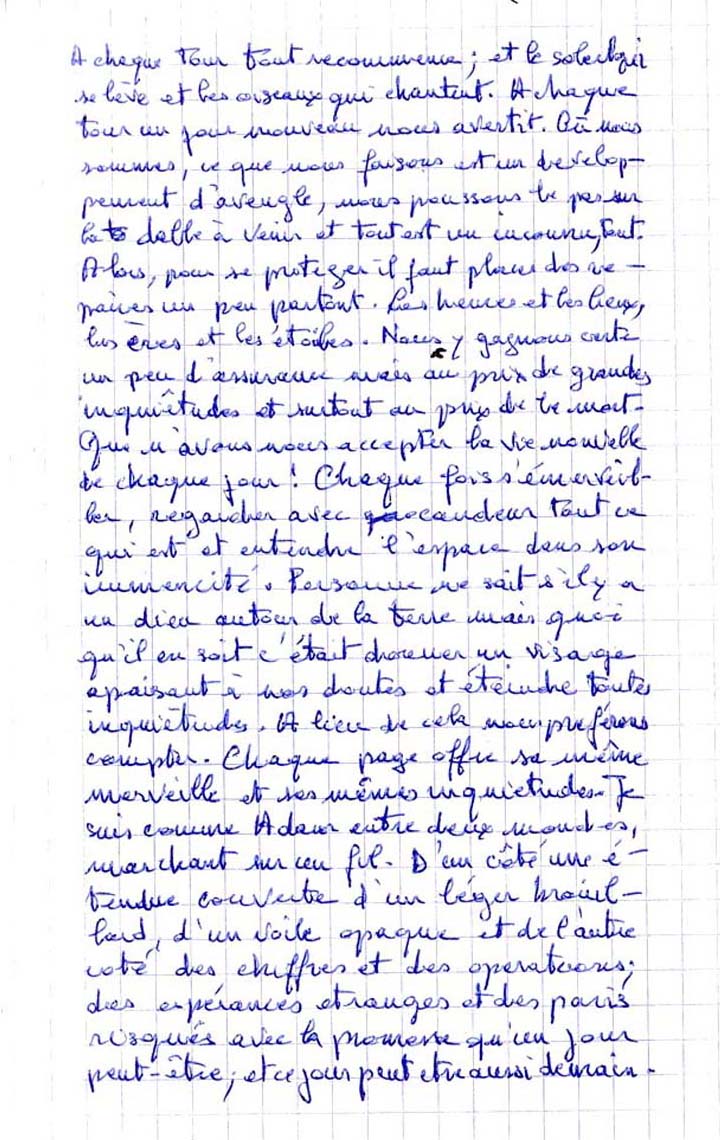 A chaque tour tout recommence ; et le soleil qui
se lève et les oiseaux qui chantent. A chaque
tour un jour nouveau nous avertit. Où nous
sommes, ce que nous faisons est un develop-
pement d'aveugle, nous poussons le pas sur
la dalle à venir et tout est un inconnu, tout.
Alors, pour se proteger il faut placer des re-
paires un peu partout. Les heures et les lieux,
les ères et les étoiles. Nous y gagnons certe
un peu d'assurance mais au prix de grandes
inquiètudes et surtout au prix de le mort.
Que n'avons nous accepter la vie nouvelle
de chaque jour ! Chaque fois s'émerveil-
ler, regarder avec candeur tout ce
qui est et entendre l'espace dans son
immencité. Personne ne sait s'il y a
un dieu autour de la terre mais quoi
qu'il en soit c'était donner un visage
apaisant à nos doutes et éteindre toutes
inquiètudes. A lieu de cela nous préférons
compter. Chaque page offre sa même
merveille et ses mêmes inquietudes. Je
suis comme Adam entre deux mondes,
marchant sur un fil. D'un côté une é-
tendue couverte d'un léger brouil-
lard, d'un voile opaque et de l'autre
coté des chiffres et des operations ;
des espérances etranges et des paris
risqués avec la promesse qu'un jour
peut-être ; et ce jour peut etre aussi demain.